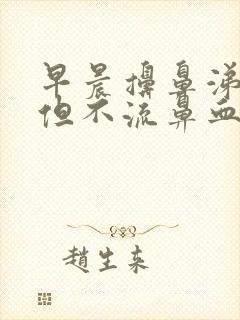 早晨擤鼻涕
但不流鼻血
趙生来